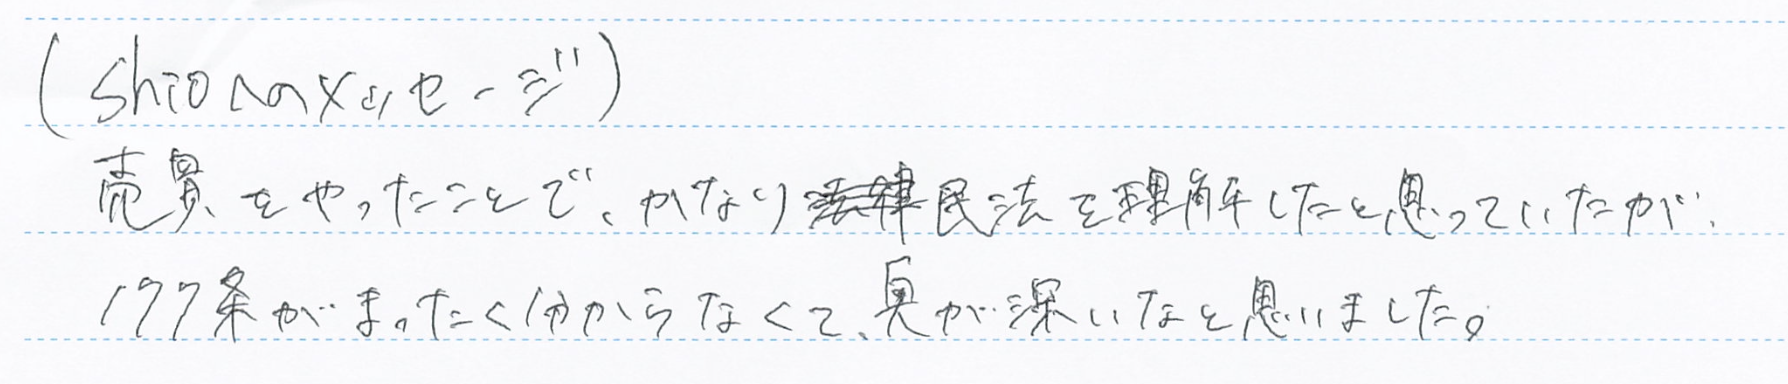 (shioへのメッセージ)
売買をやったことで、かなり民法を理解したと思っていたが、
177条がまったく分からなくて、奥が深いなと思いました。